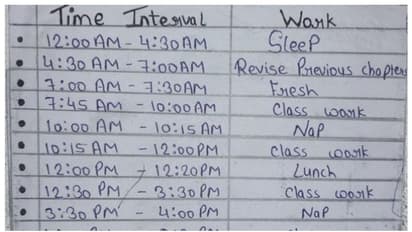 Time Interval Work
• 12:00 AM - 4:30 AM Sleep
• 4:30 AM - 7:00 AM Revise Previous chapters
• 7:00 AM - 7:30 AM Fresh
• 7:45 AM - 10:00 AM Class work
• 10:00 AM - 10:15 AM Nap
• 10:15 AM - 12:00 PM Class work
• 12:00 PM - 12:20 PM Lunch
• 12:30 PM - 3:30 PM Class work
• 3:30 PM - 4:00 PM Nap